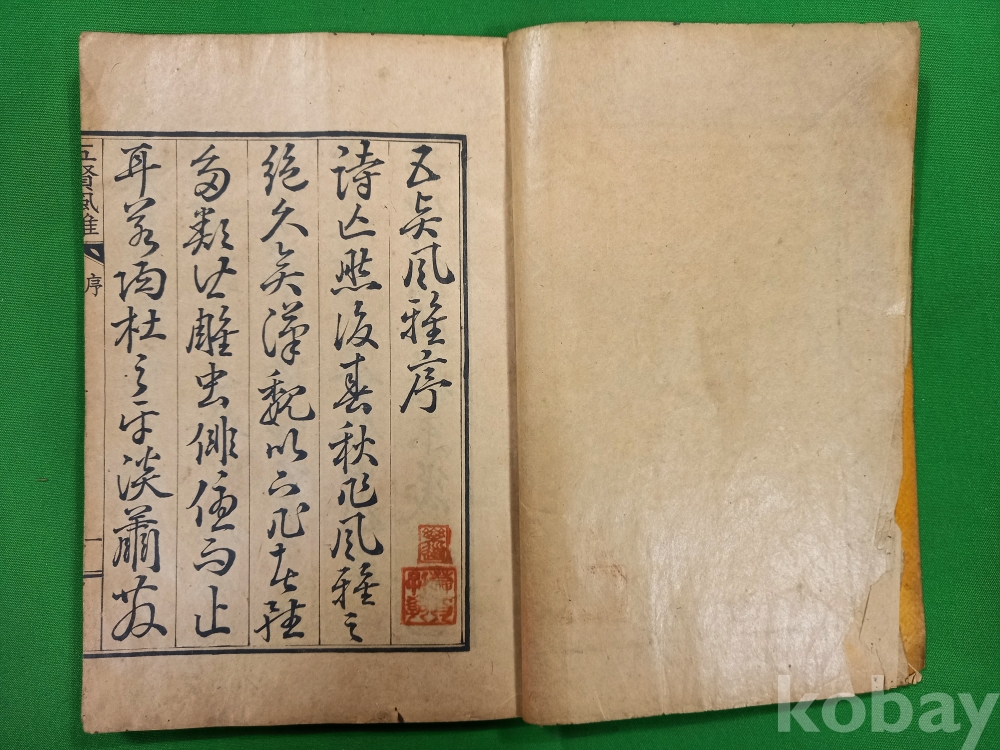 五賢風雅序
詩亡然後春秋作風雅之
絶久矣漢魏以下作者雖
多類雕虫俳優而止
耳若陶杜之平淡蕭散
五賢風雅
序
一
kobay